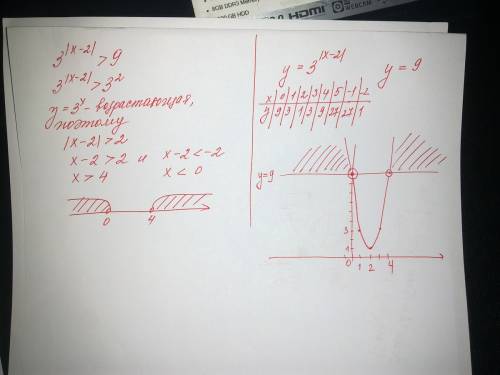 8GB DDR3 Memory
GB HDD
HDMI
WEBCAM
3^|x-2| > 9
3^|x-2| > 3^2
y = 3^x - возрастающая,
поэтому
|x-2| > 2
x-2 > 2 и x-2 < -2
x > 4 x < 0
0 4
y = 3^|x-2| y = 9
x | 0 | 1 | 2 | 3 | 4 | 5 | -1 |
y | 9 | 3 | 1 | 3 | 9 | 27 | 27 | 1
y=9
3
1
0 1 2 4